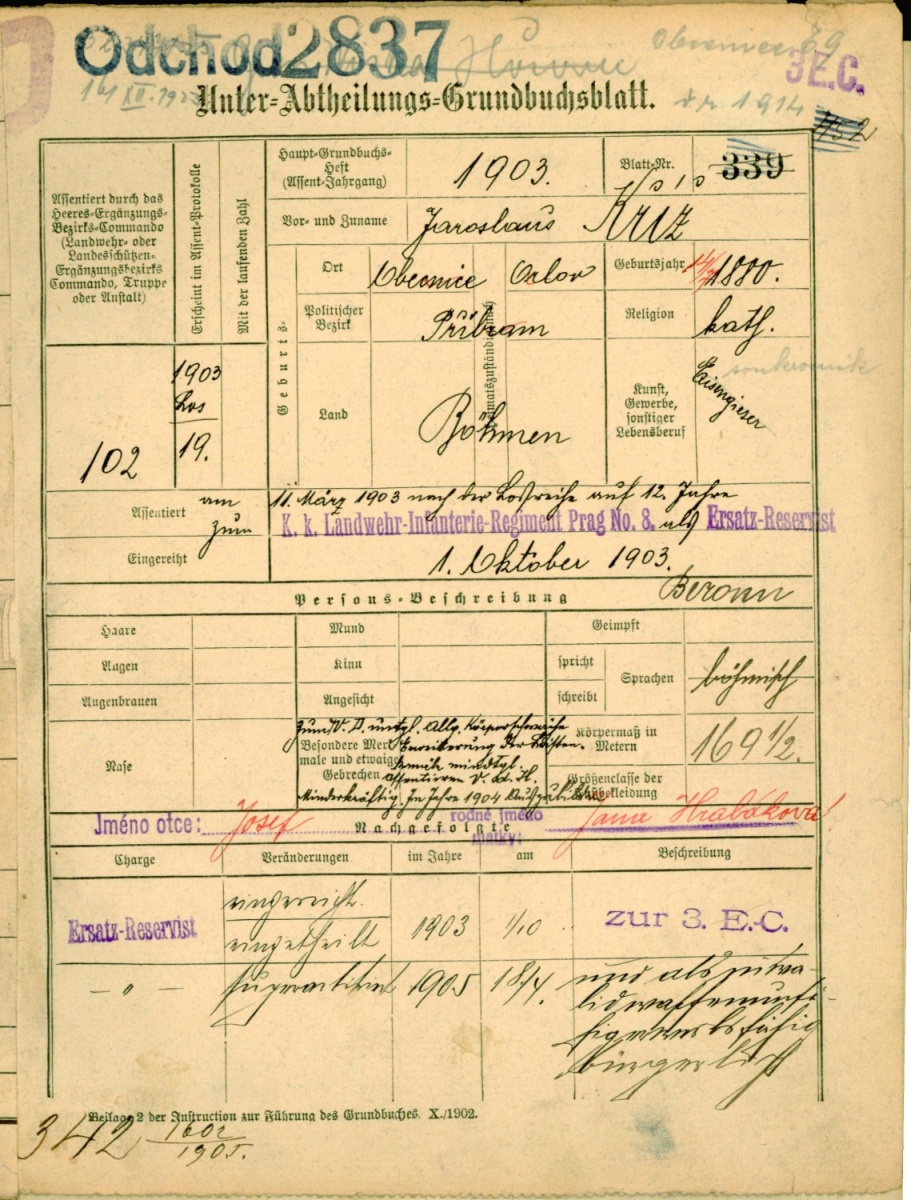 Odchod 2837
Obecnice 69
3 E.C.
14/XII.
Unter-Abtheilungs-Grundbuchsblatt.
1914
Assentiert durch das Heeres-Ergänzungs-Bezirks-Commando (Landwehr- oder Landesschützen-Ergänzungsbezirks Commando, Truppe oder Anstalt)
Erscheint im Assent-Protokolle
Mit der laufenden Zahl
Haupt-Grundbuchs-Heft (Assent-Jahrgang)
1903.
Blatt-Nr.
339
Vor- und Zuname
Jaroslaus Kříž
Geburts-
Ort
Obecnice Orlov
Geburtsjahr
14/7 1880.
Politischer Bezirk
Příbram
Religion
kath.
Land
Böhmen
Kunst, Gewerbe, sonstiger Lebensberuf
Eisengieser
102
1903
Los
19.
Assentiert
am
zum
11. März 1903 nach der Losreihe auf 12. Jahre
K. k. Landwehr-Infanterie-Regiment Prag No. 8. als Ersatz-Reservist
Eingereiht
1. Oktober 1903.
Beroun
Persons-Beschreibung
Haare
Mund
Geimpft
Augen
Kinn
spricht
Sprachen
böhmisch
Augenbrauen
Angesicht
schreibt
Nase
Besondere Merkmale und etwaige Gebrechen
zum W. D. untgl. Allg. Körperschwäche
Minderkräftig. Im Jahre 1904
Körpermaß in Metern
169 1/2.
Größenclasse der Bekleidung
Jméno otce: Josef
rodné jméno matky: Jana Hrabáková
Nachgefolgte
Charge
Veränderungen
im Jahre
am
Beschreibung
Ersatz-Reservist
eingereicht.
eingetheilt
1903
1/10
zur 3. E.-C.
— „ —
superarbitriert
1905
18/4.
und als invalid waffenunfähig erwerbsfähig bürgerlich
Beilage 2 der Instruction zur Führung des Grundbuches. X./1902.
342
1602/1905.